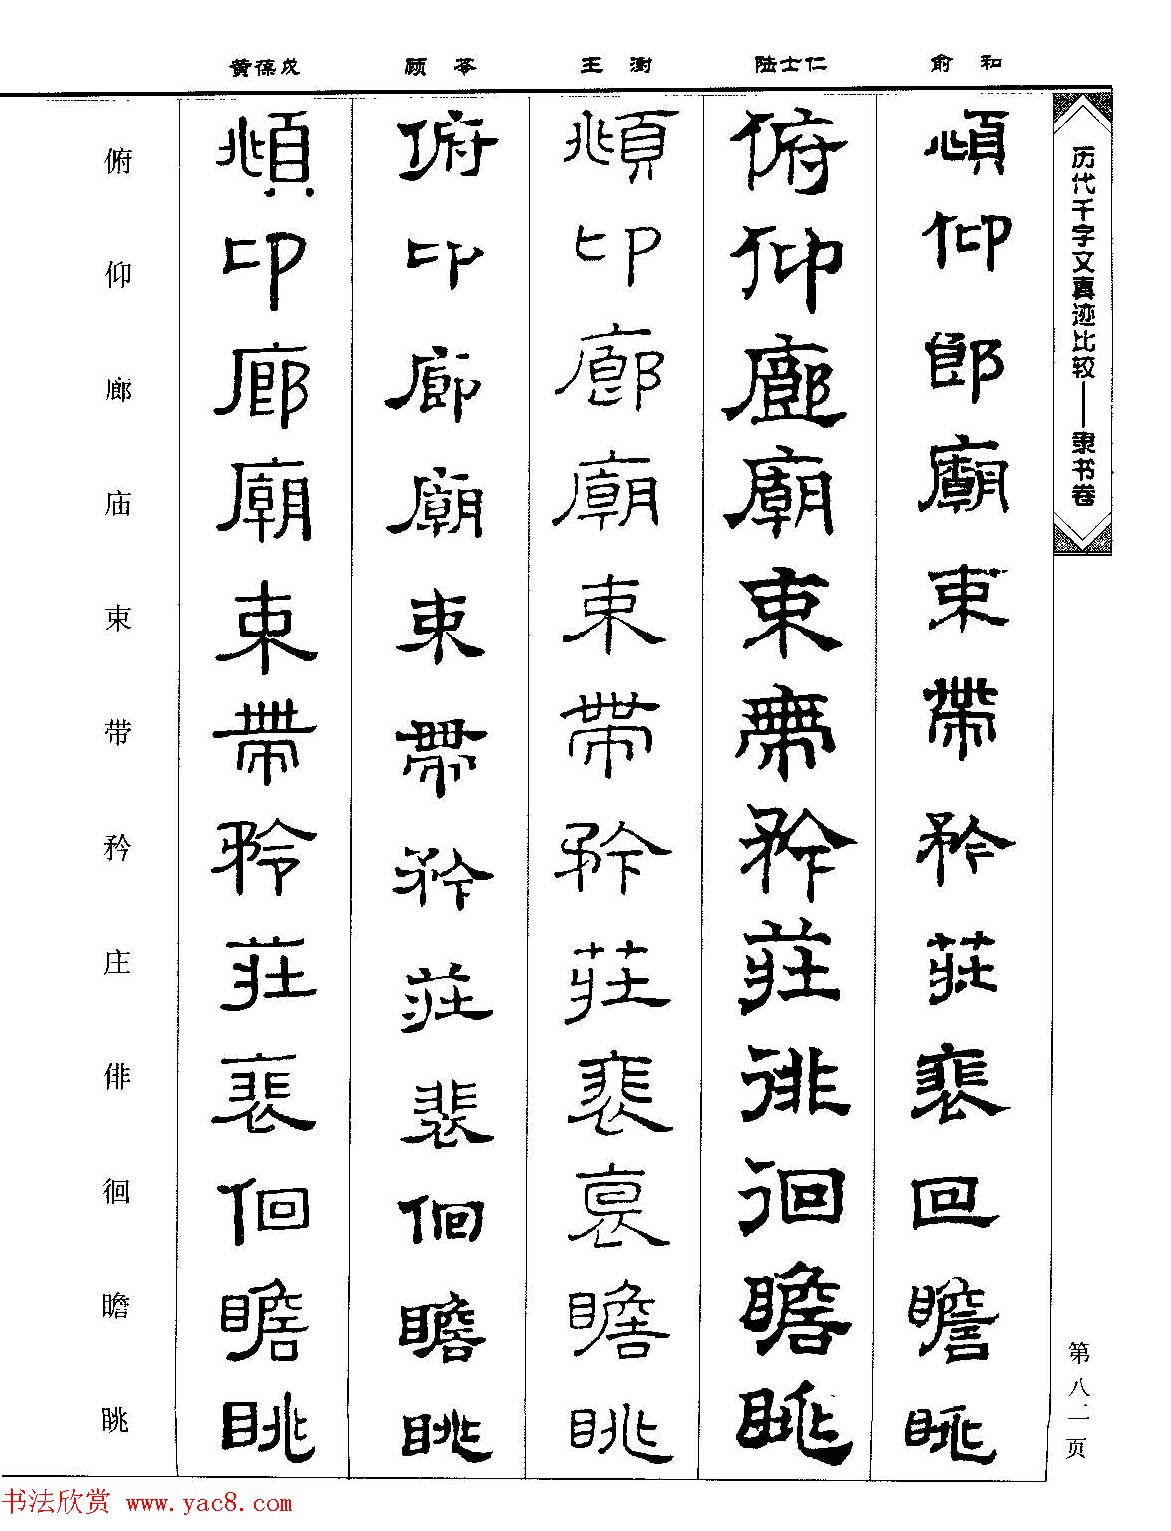 历代千字文真迹比较——隶书卷
俞和
頫仰郎廟束帶矜莊裴回瞻眺
陆士仁
俯仰廊廟束帶矜莊徘徊瞻眺
王澍
頫卬廊廟束帶矜莊裴瞻眺
顾苓
俯卬廊廟束帶矜莊裴佪瞻眺
黄葆戉
頫卬廊廟束帶矜莊裴佪瞻眺
俯仰廊庙束带矜庄俳徊瞻眺
第八二页
书法欣赏 www.yac8.com